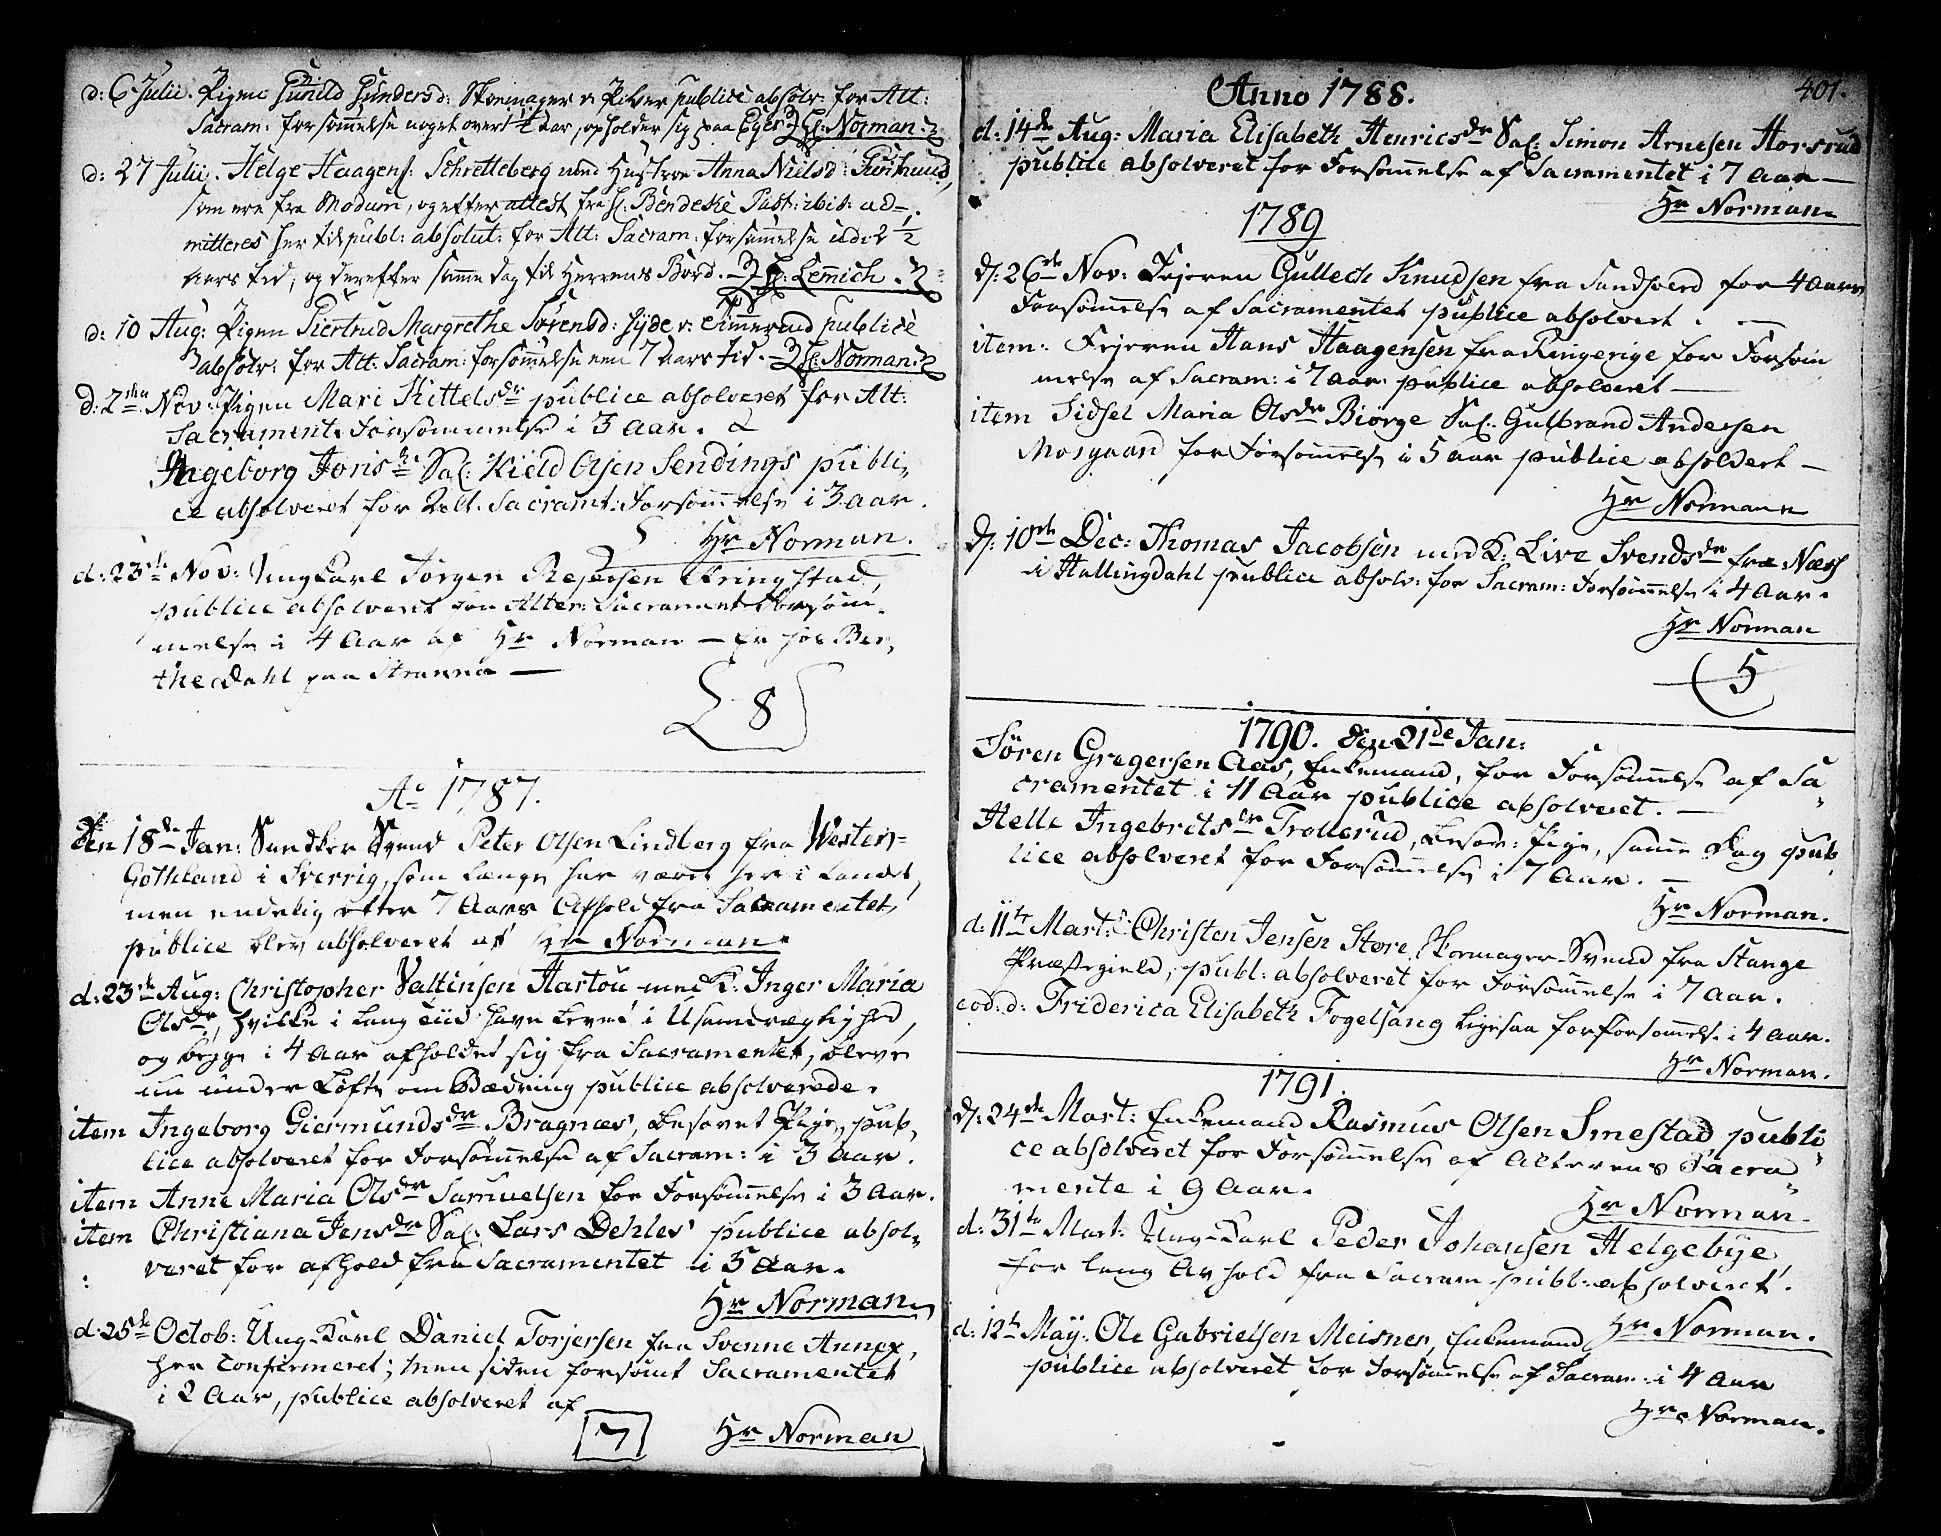 d: 6 Julii. Pigen Gunild Gundersd: Skomager v: Piber publice absolv: for Alt:
Sacram: forsømmelse noget over 1/2 Aar, opholder sig paa Eger H: Norman.
d: 27 Julii. Helge Haagens: Schretteberg med Hustroe Anna Nielsd:
som ere fra Modum, og efter attest fra H. Bendeke Past: ibid: ad-
mitteres her til publ: absolut: for Alt: Sacram: forsømmelse udi 2 1/2
Aars tid, og derefter samme dag til Herrens Bord. H: Lemich.
d: 10 Aug: Pigen Giertrud Margrethe Sørensd: publice
absolv: for Alt: Sacram: forsømmelse en 7 Aars tid. H: Norman.
d: 2den Nov: Pigen Mari Kittelsdr publice absolveret for Alt:
Sacrament: Forsømmelse i 3 Aar. &
Ingeborg Jonisdr Sal: Kield Olsen Sendings publi-
ce absolveret for Alt: Sacramt: Forsømmelse i 3 aar.
Hr Norman.
d: 23de Nov: Ung Karl Jørgen Kringstad
publice absolveret for Alter: Sacrament Forsøm-
melse i 4 Aar af Hr Norman — Er hos Ber,
the Dahl paa Strømsø —
8
Ao 1787.
Den 18de Jan: Svend Peter Olsen Lindberg fra Wester-
Gothland i Sverrig, som længe har været her i Landet,
men endelig efter 7 Aars Afhold fra Sacramentet,
publice blev absolveret af Hr Norman.
d: 23de Aug: Christopher Valtinsen Hartou med K: Inger Maria
Olsdr, hvilke i lang Tiid have levet i Usamdrægtighed,
og begge i 4 Aar afholdet sig fra Sacramentet, bleve
nu under Løfte om Bædring publice absolverede.
item Ingeborg Giermundsdr Bragnæs, besovet Pige, pub-
lice absolveret for Forsømmelse af Sacram: i 3 Aar.
item Anne Maria Olsdr Samuelsen for Forsømmelse i 3 Aar.
item Christiana Jensdr Sal: Lars Dehles publice absol-
veret for afhold fra Sacramentet i 5 Aar.
Hr Norman
d: 25de Octob: Ung-Karl Daniel Torjersen fra Svenne Annex,
her Confirmeret; men siden forsømt Sacramentet
i 2 Aar, publice absolveret af
7 Hr Norman
401.
Anno 1788.
d: 14de Aug: Maria Elisabeth Henricsdr Sal: Simon Arnesen Horsrud
publice absolveret for Forsømmelse af Sacramentet i 7 Aar —
Hr Norman
1789
d: 26de Nov: Frieren Gullech Knudsen fra Sandsverd for 4 Aars
Forsømmelse af Sacramentet publice absolvert. —
item: Frieren Hans Haagensen fra Ringerige for Forsøm
melse af Sacram: i 7 Aar publice absolveret —
item Sidsel Maria Olsdr Biørge Sal: Gulbrand Andersen
Mosgaard for Forsømmelse i 5 aar publice absolvert —
Hr Norman
d: 10de Dec: Thomas Jacobsen med K: Live Svendsdr fra Næss
i Hallingdahl publice absolv: for Sacram: Forsømmelse i 4 Aar.
Hr Norman
5
1790. den 21de Jan:
Søren Gregersen Aas, Enkemand, for Forsømmelse af Sa
cramentet i 11 Aar publice absolveret. —
Helle Ingebretsdr Trollerud, besov: Pige, samme Dag pub
lice absolveret for Forsømmelse i 7 Aar. —
Hr Norman.
d: 11te Mart: Christen Jensen Støre, Skomager-Svend fra Stange
Præstegield, publ: absolveret for Forsømmelse i 7 Aar.
eod: d: Friderica Elisabeth Fogelsang ligesaa for Forsømmelse i 4 Aar.
Hr Norman.
1791.
d: 24de Mart: Enkemand Rasmus Olsen Smestad publi
ce absolveret for Forsømmelse af Alterens Sacra
mente i 9 Aar.
Hr Norman
d: 31te Mart: Ung-Karl Peder Johansen Helgebye
for lang Avhold fra Sacram: publ: absolveret.
Hr Norman.
d: 12te May: Ole Gabrielsen Meisner, Enkemand
publice absolveret for Forsømmelse af Sacram: i 4 Aar
Hr Norman.